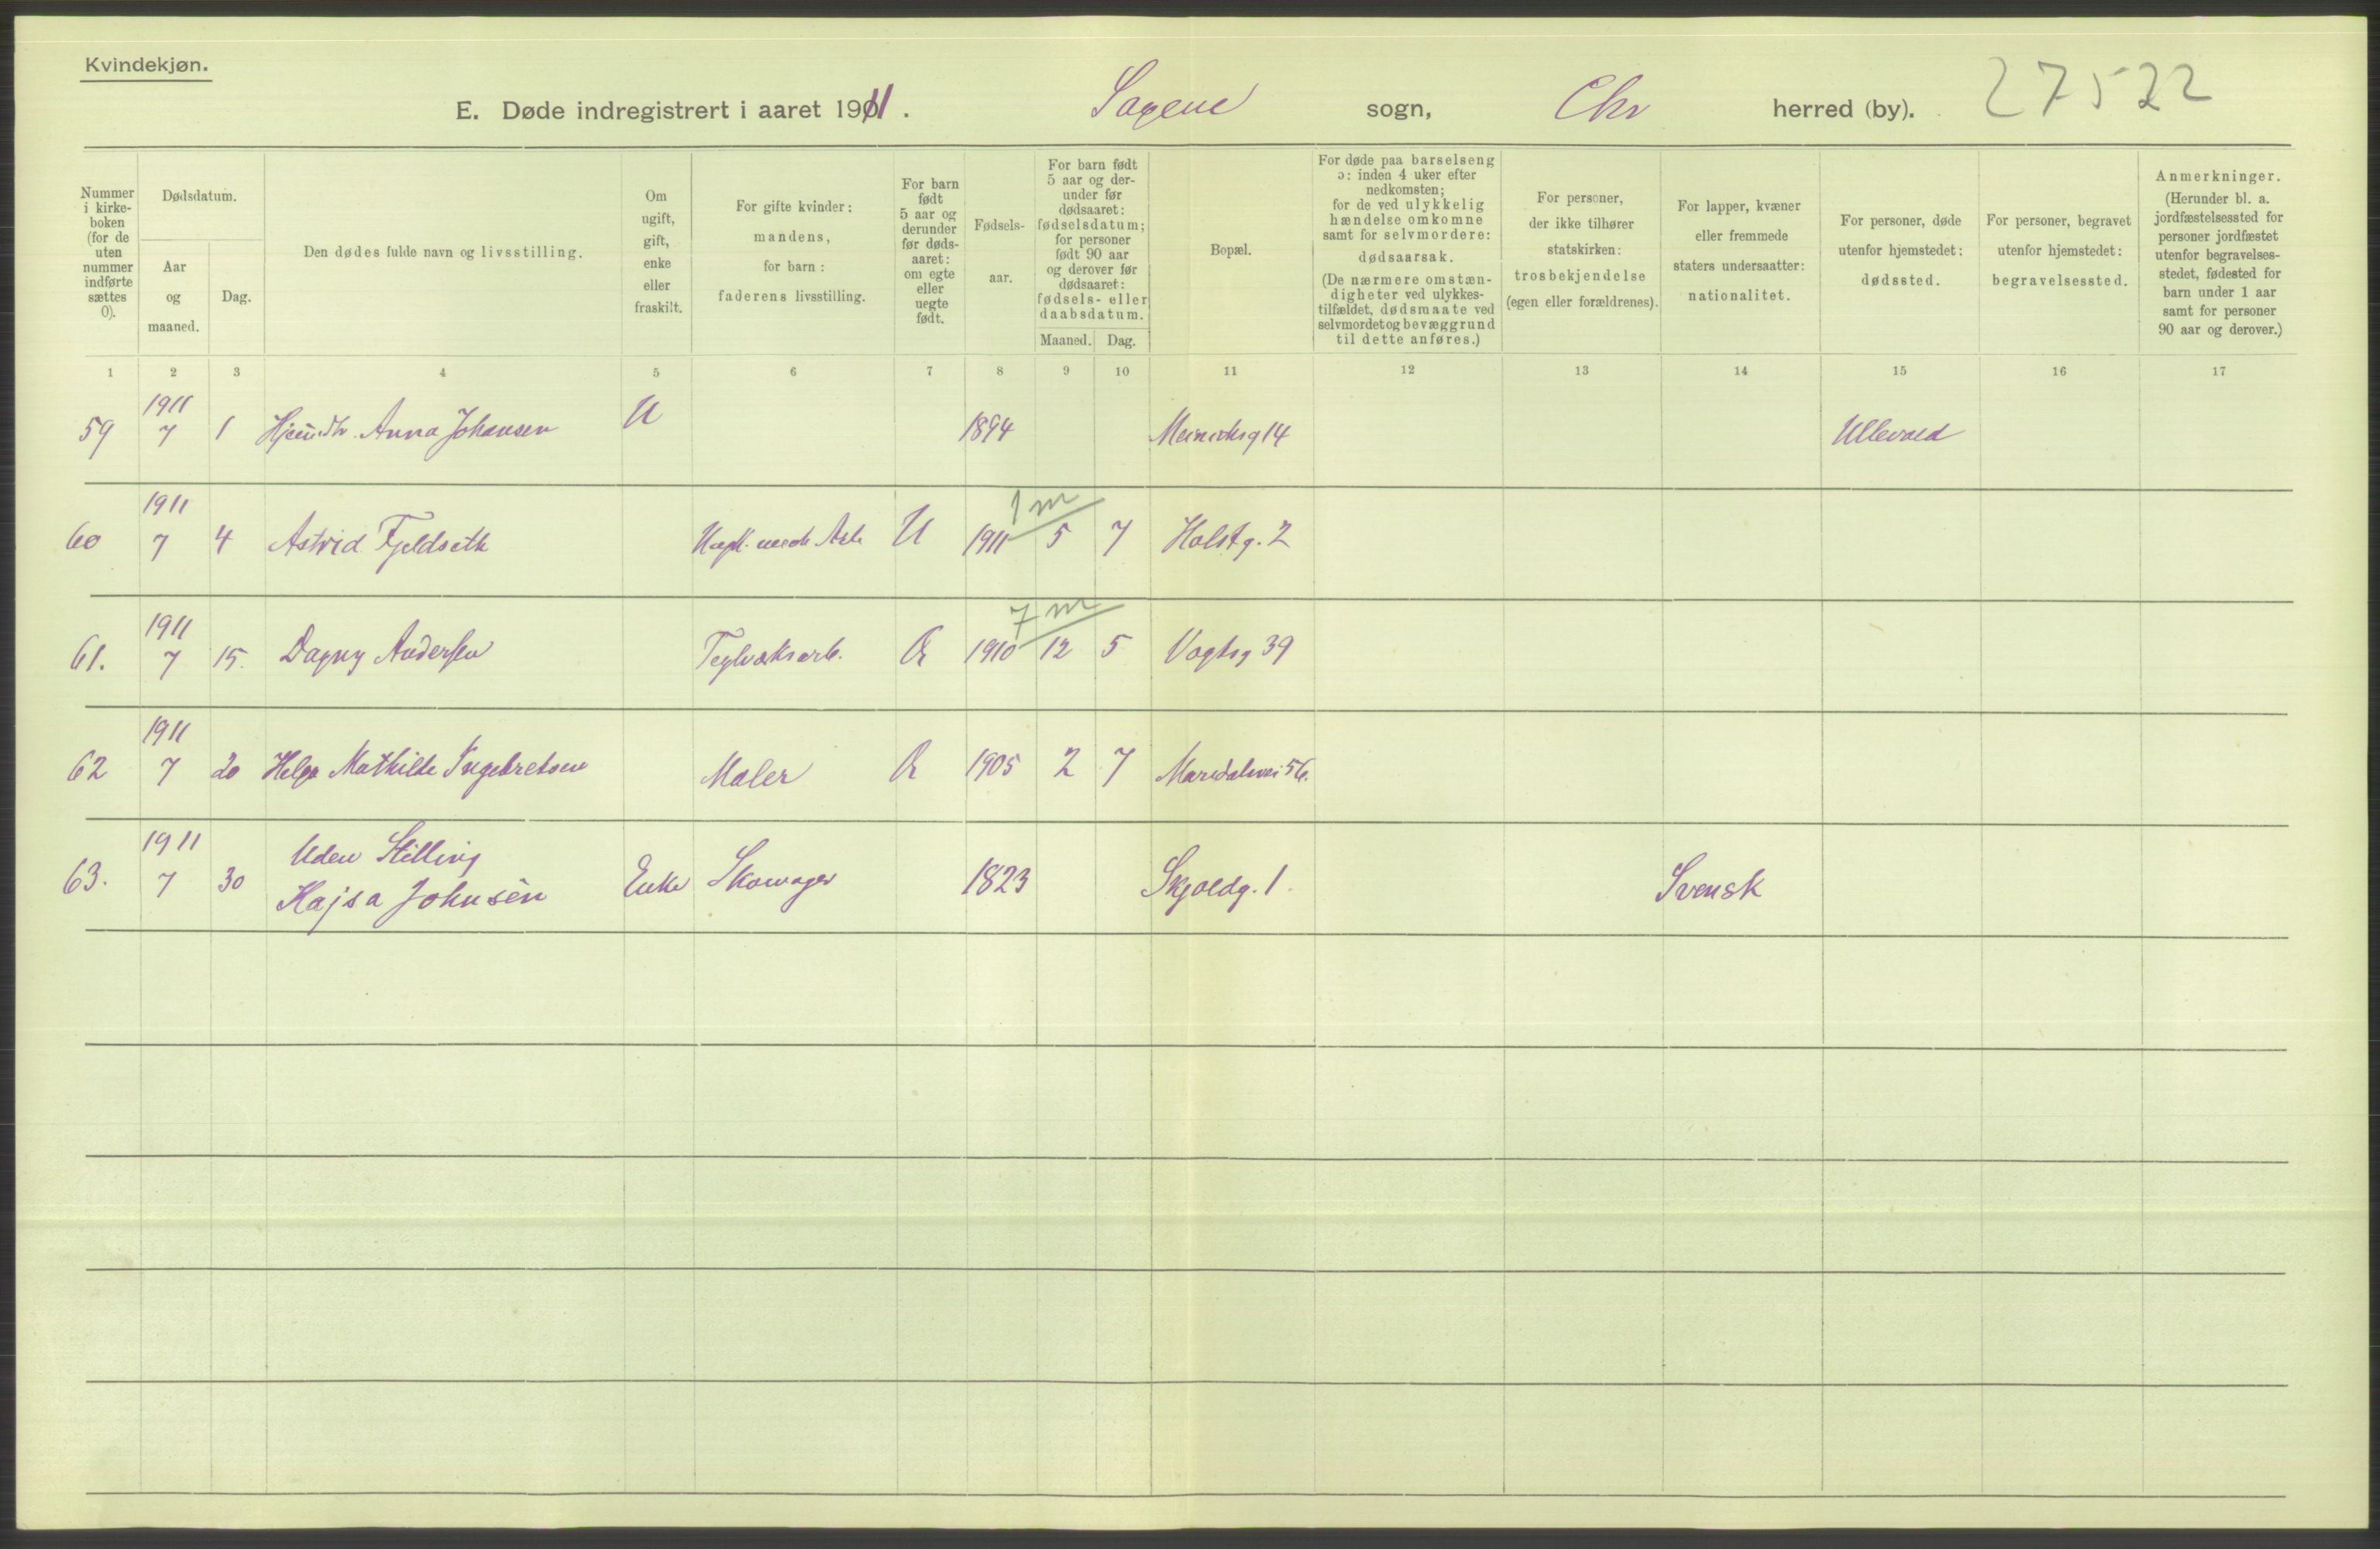 Kvindekjøn.
E. Døde indregistrert i aaret 1911. Sagene sogn, Chr herred (by). 27522
Nummer i kirke-boken (for de uten nummer indførte sættes 0).
Dødsdatum.
Aar og maaned.
Dag.
Den dødes fulde navn og livsstilling.
Om ugift, gift, enke eller fraskilt.
For gifte kvinder: mandens, for barn: faderens livsstilling.
For barn født 5 aar og derunder før døds-aaret: om egte eller uegte født.
Fødsels-aar.
For barn født 5 aar og der-under før dødsaaret: fødselsdatum; for personer født 90 aar og derover før dødsaaret: fødsels- eller daabsdatum.
Maaned. Dag.
Bopæl.
For døde paa barselseng ɔ: inden 4 uker efter nedkomsten; for de ved ulykkelig hændelse omkomne samt for selvmordere: dødsaarsak. (De nærmere omstæn-digheter ved ulykkes-tilfældet, dødsmaate ved selvmordet og bevæggrund til dette anføres.)
For personer, der ikke tilhører statskirken: trosbekjendelse (egen eller forældrenes).
For lapper, kvæner eller fremmede staters undersaatter: nationalitet.
For personer, døde utenfor hjemstedet: dødssted.
For personer, begravet utenfor hjemstedet: begravelsessted.
Anmerkninger. (Herunder bl. a. jordfæstelsessted for personer jordfæstet utenfor begravelses-stedet, fødested for barn under 1 aar samt for personer 90 aar og derover.)
1 2 3 4 5 6 7 8 9 10 11 12 13 14 15 16 17
1911
59 7 1 Anna Johansen U 1894 14 Ullevold
1911 1 m
60 7 4 Astrid Fjeldseth U 1911 5 7 Holstg. 2
1911 7 m
61. 7 15. Dagny Andersen Teglværksarb. E 1910 12 5 Vogtsg 39
1911
62 7 20 Helga Mathilde Ingebretsen Maler E 1905 2 7 Maridalsvei 56.
1911 Uden Stilling
63. 7 30 Kajsa Johnsèn Enke 1823 Skjoldg. 1. Svensk